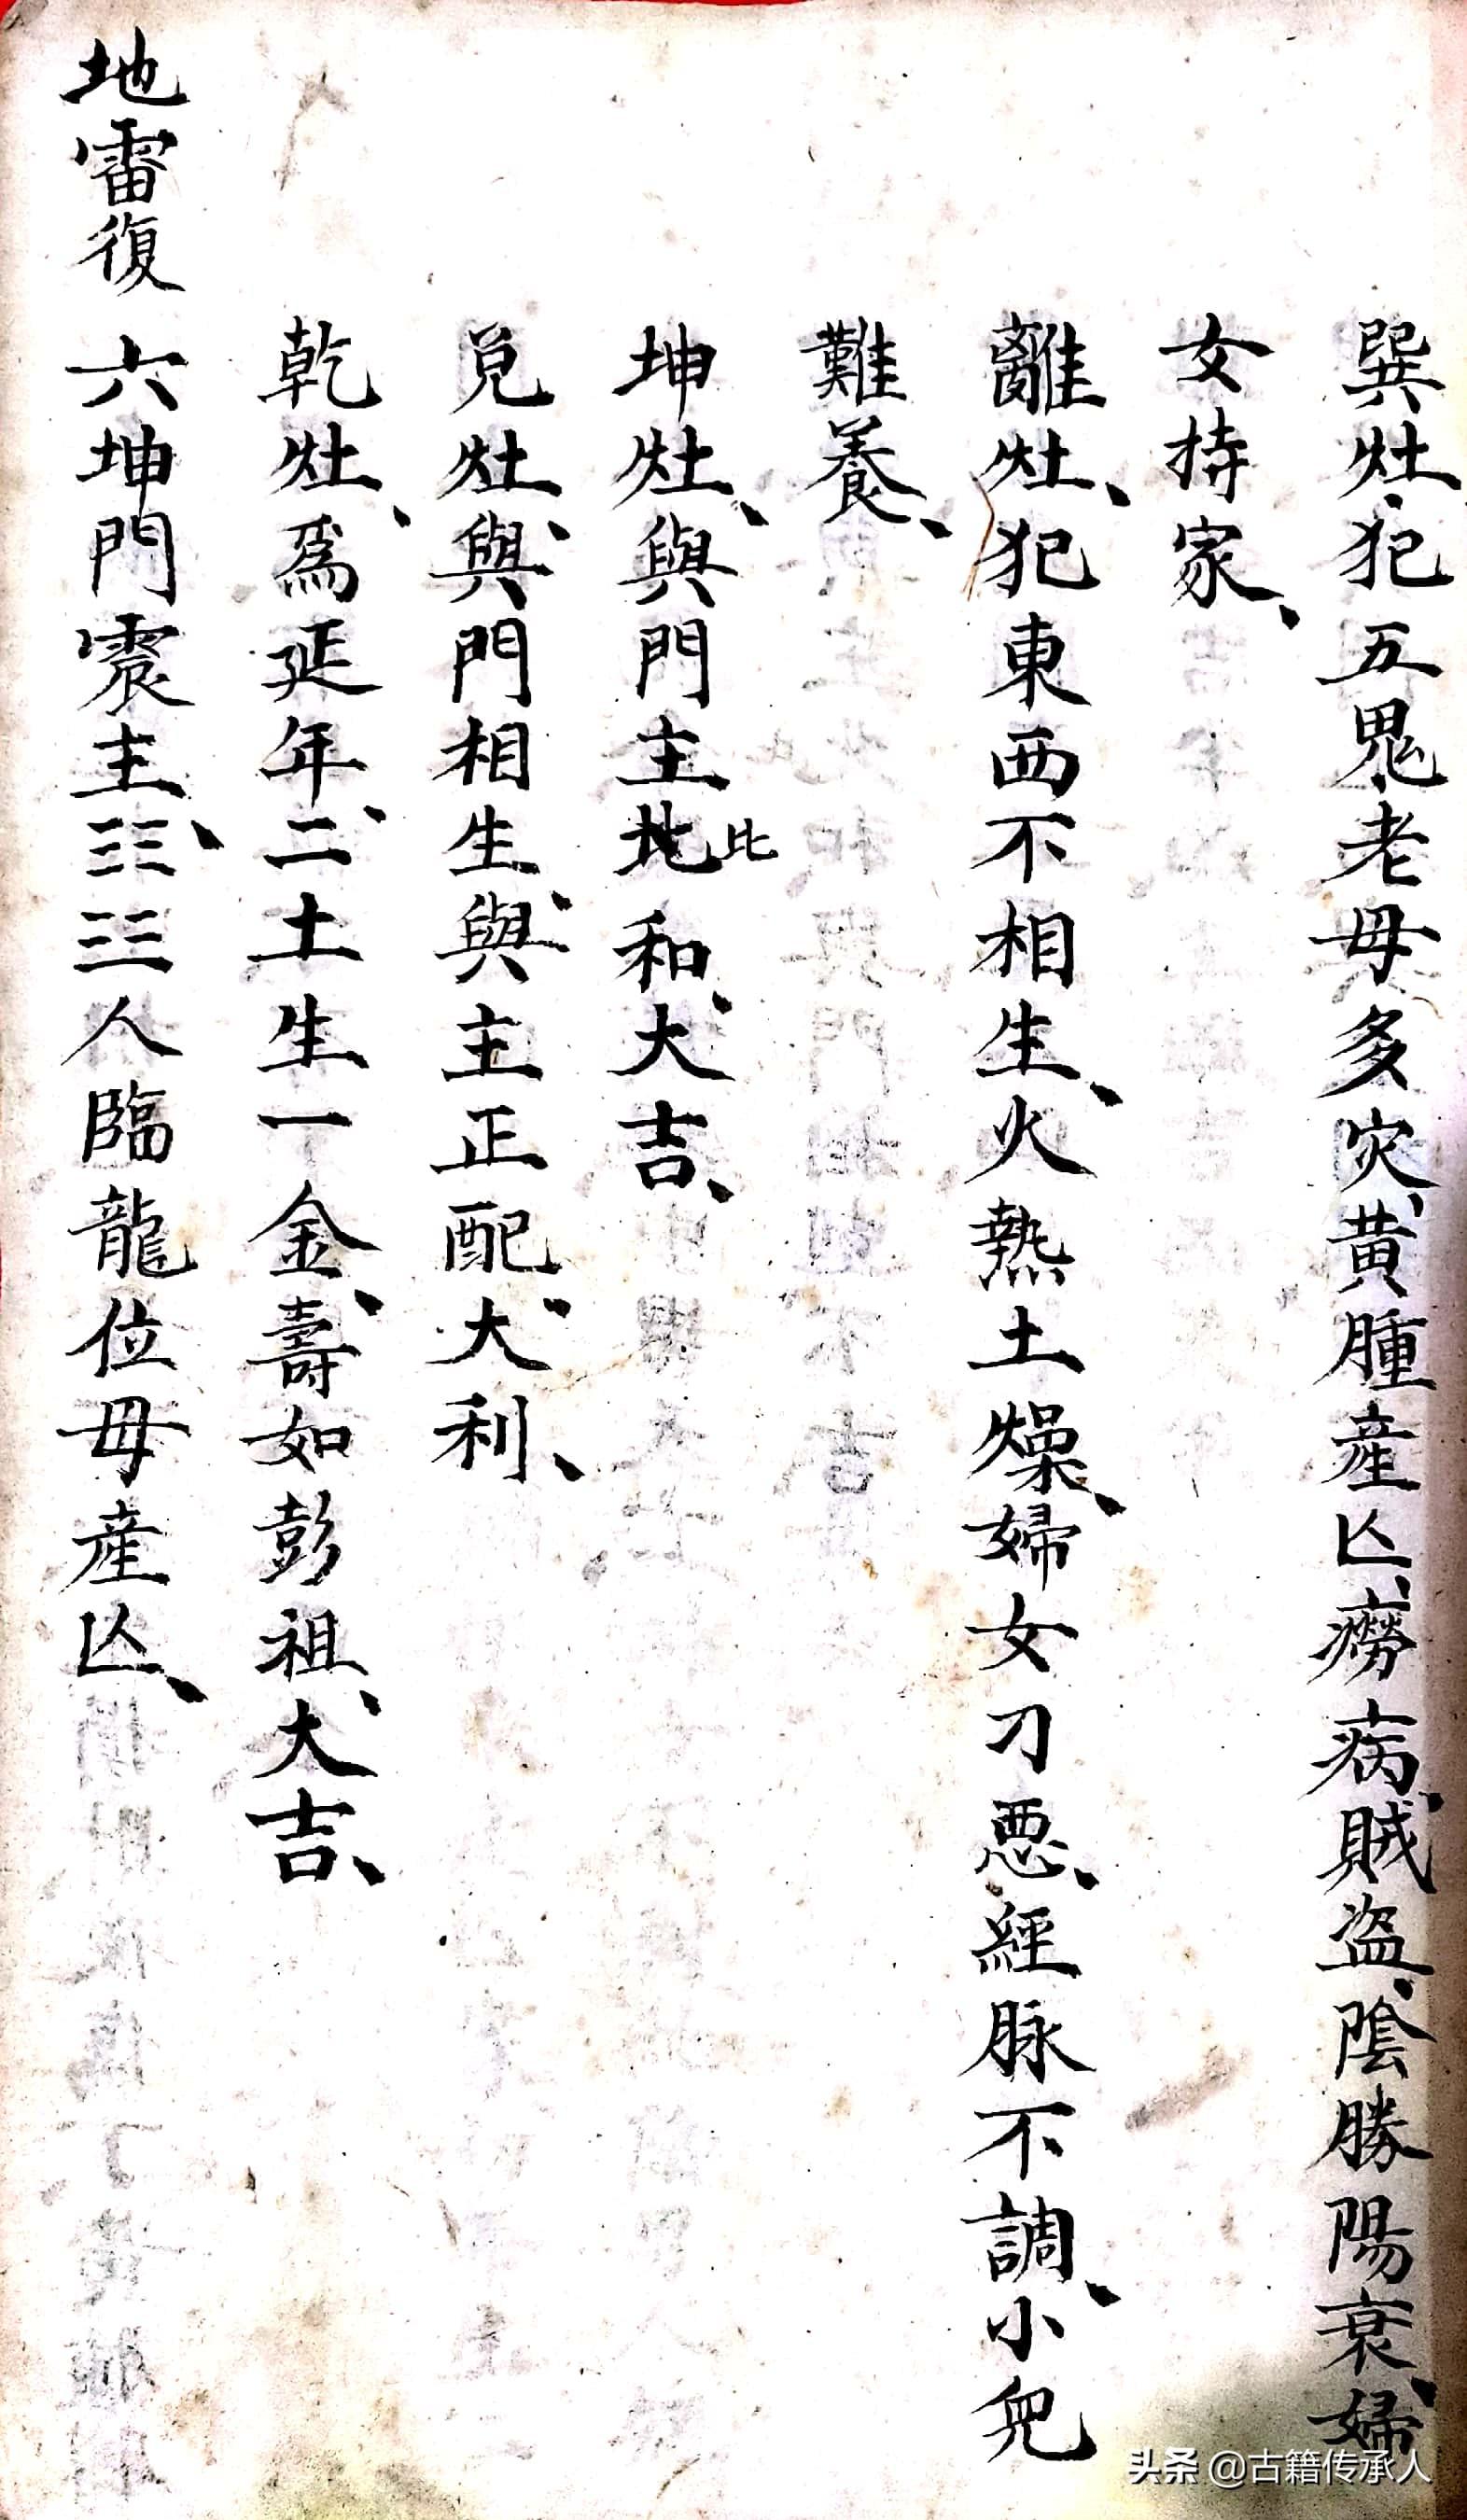 巽灶、犯五鬼、老母多灾、黄腫産亾、癆病、賊盗、陰勝陽衰、婦
女持家、
離灶、犯東西不相生、火熱土燥、婦女刁悪、經脉不調、小兒
難養、
坤灶、與門主地比和、大吉、
兌灶、與門相生、與主正配、大利、
乾灶、為延年、二土生一金、壽如彭祖、大吉、
地雷復 六坤門震主、☷☳人臨龍位母産亾、
头条 @古籍传承人